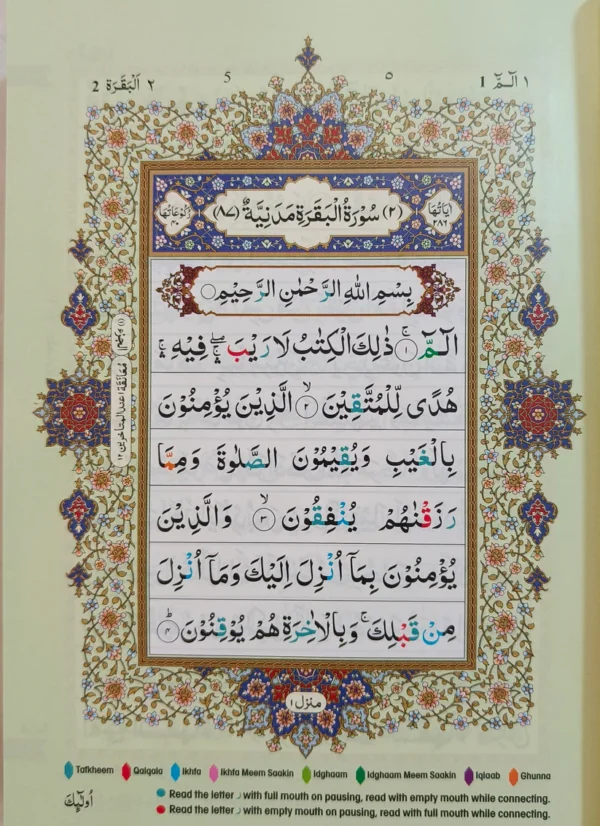 ٢ اَلْبَقَرَة 2
5
٥
١ الٓمّٓ 1
اٰیَاتُهَا ٢٨٦
(٢) سُوْرَةُ الْبَقَرَةِ مَدَنِيَّةٌ (٨٧)
رُكُوْعَاتُهَا ٤٠
بِسْمِ اللّٰهِ الرَّحْمٰنِ الرَّحِيْمِ
الٓمّٓ ۚ﴿١﴾ ذٰلِكَ الْكِتٰبُ لَا رَيْبَ ۛۖ فِيْهِ ۛۚ
هُدًى لِّلْمُتَّقِيْنَ ۙ﴿٢﴾ الَّذِيْنَ يُؤْمِنُوْنَ
بِالْغَيْبِ وَيُقِيْمُوْنَ الصَّلٰوةَ وَمِمَّا
رَزَقْنٰهُمْ يُنْفِقُوْنَ ۙ﴿٣﴾ وَالَّذِيْنَ
يُؤْمِنُوْنَ بِمَاۤ اُنْزِلَ اِلَيْكَ وَمَاۤ اُنْزِلَ
مِنْ قَبْلِكَ ۚ وَبِالْاٰخِرَةِ هُمْ يُوْقِنُوْنَ ؕ﴿٤﴾
منزل ١
Tafkheem Qalqala Ikhfa Ikhfa Meem Saakin Idghaam Idghaam Meem Saakin Iqlaab Ghunna
Read the letter ر with full mouth on pausing, read with empty mouth while connecting.
Read the letter ر with empty mouth on pausing, read with full mouth while connecting.
اُولٰٓئِكَ